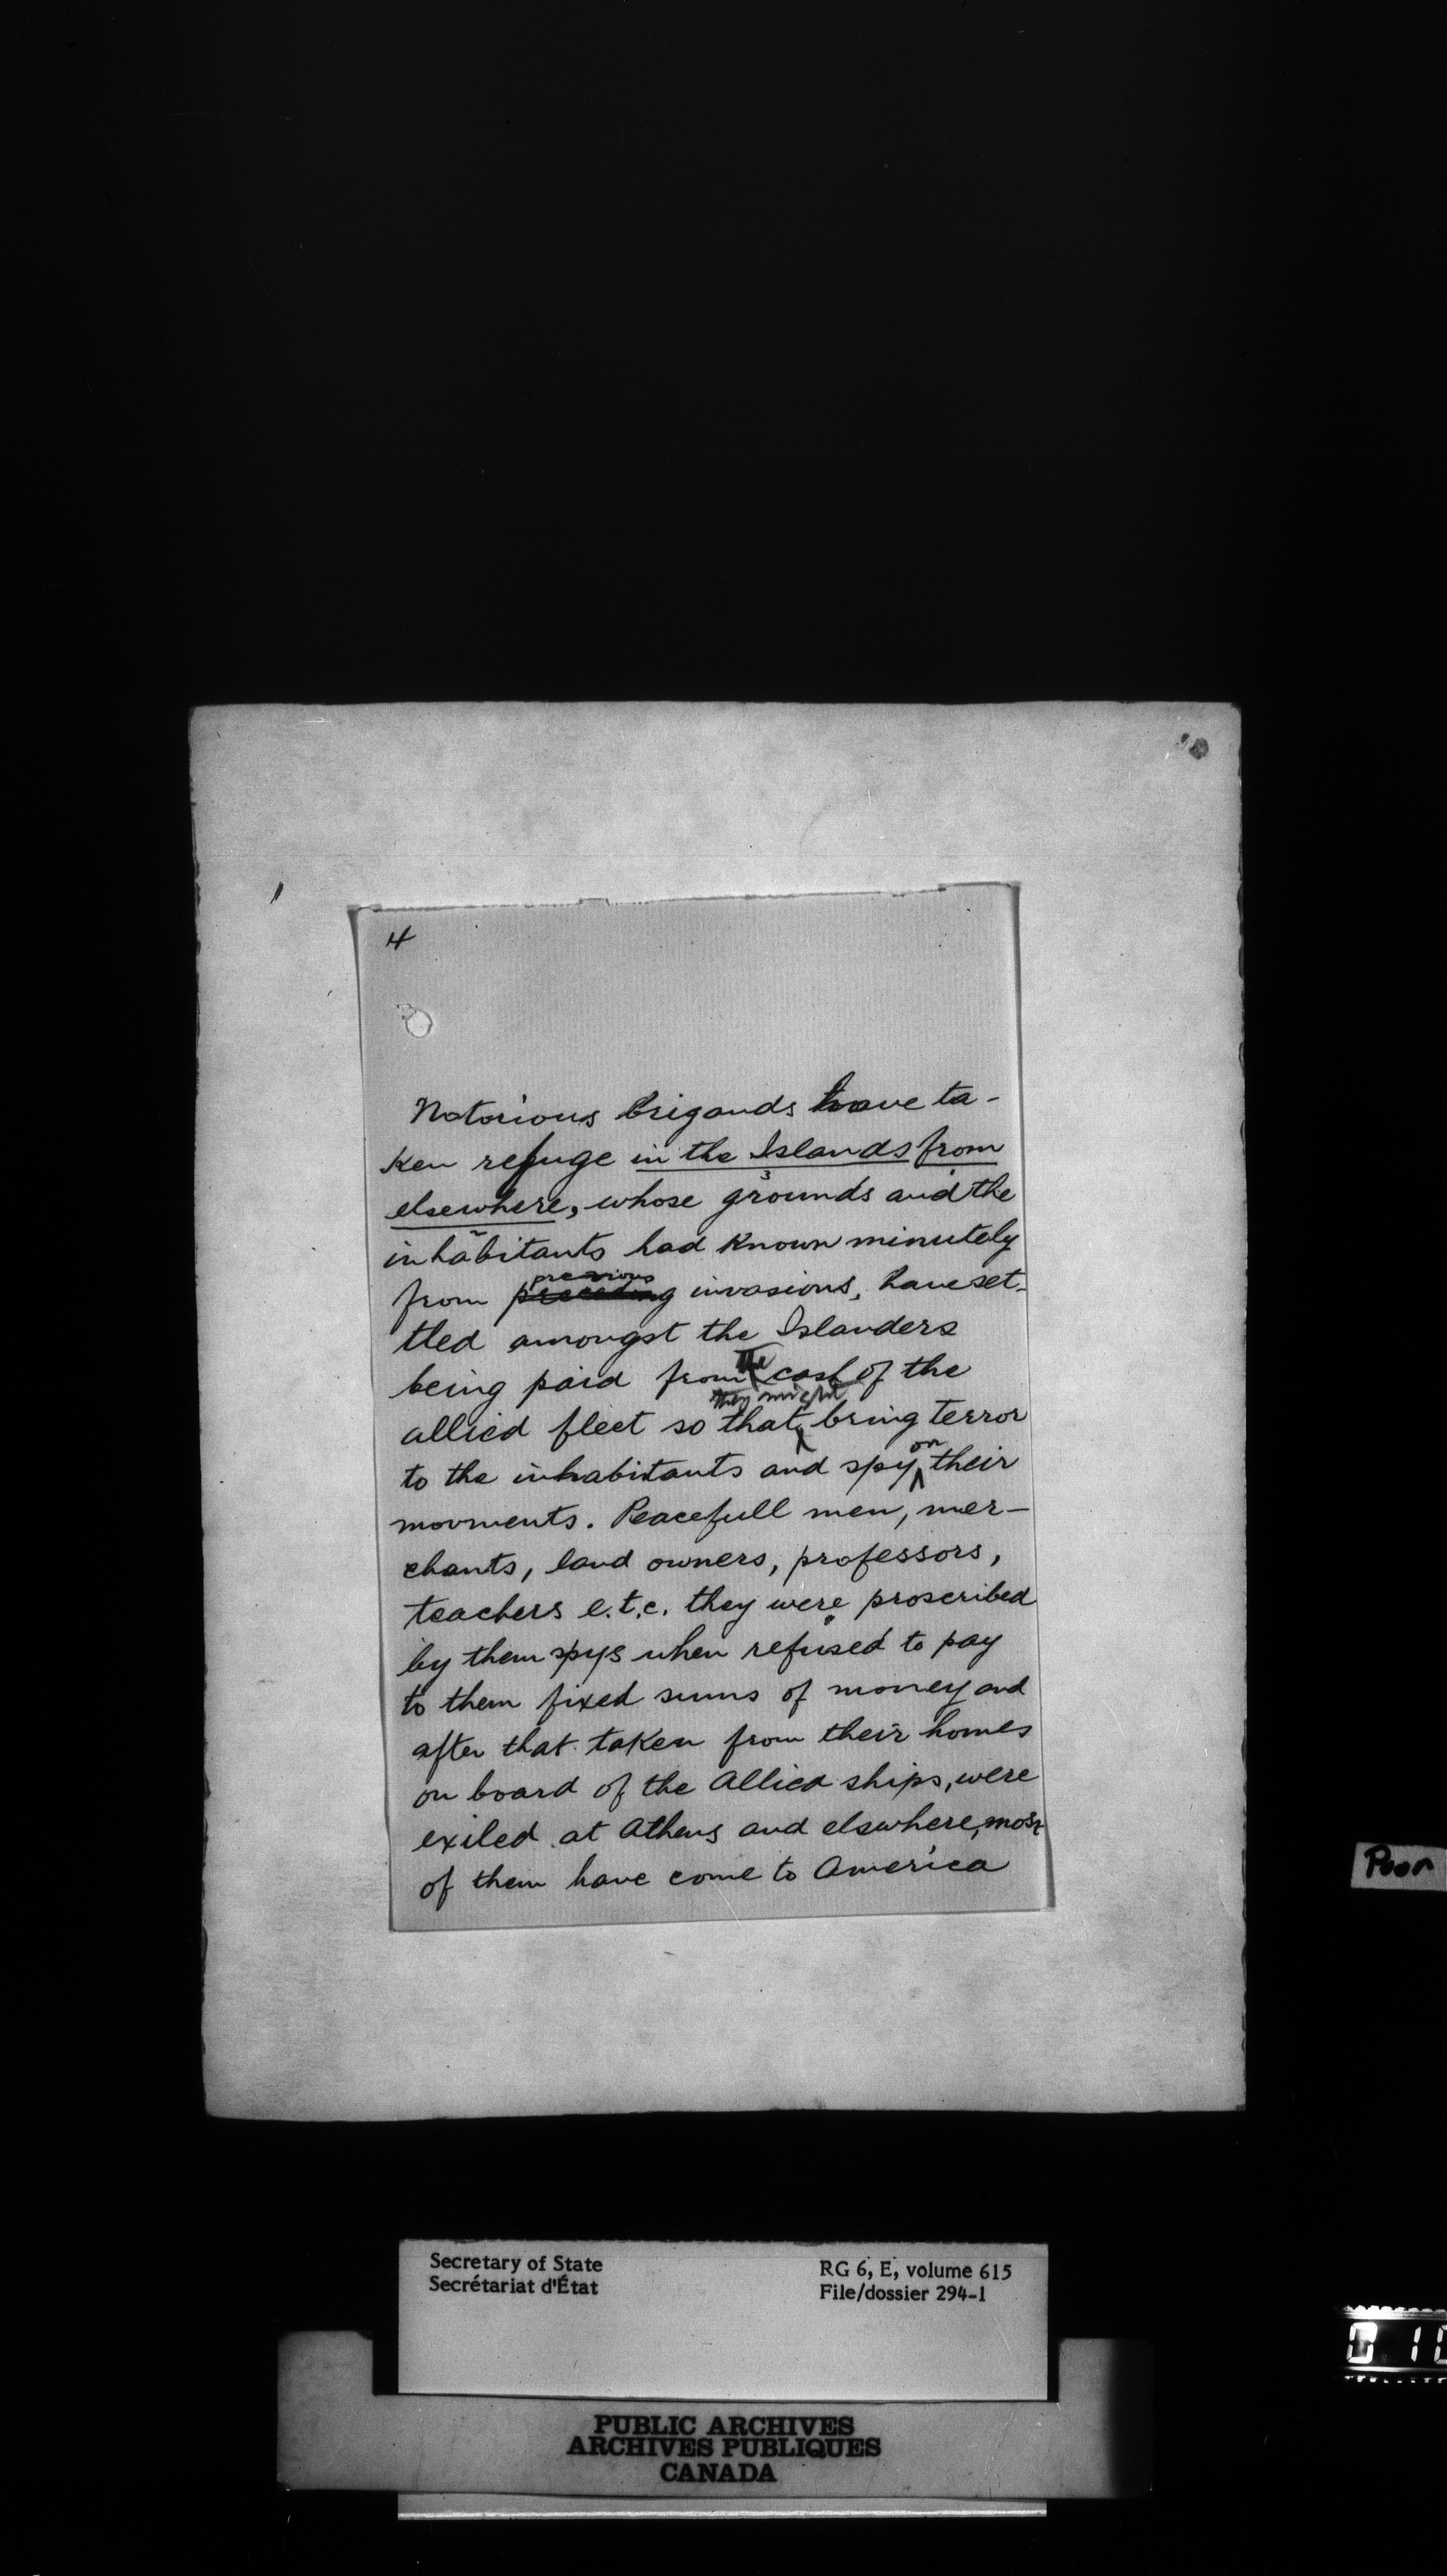 4
Notorious brigands have ta-
ken refuge in the Islands from
elsewhere, whose grounds and the
inhabitants had known minutely
previous
from preceding invasions, have set-
tled amongst the Islanders
the
being paid from cash of the
they might
allied fleet so that bring terror
on
to the inhabitants and spy their
movments. Peacefull men, mer-
chants, land owners, professors,
teachers e.t.c. they were proscribed
by them spys when refused to pay
to them fixed sums of money and
after that taken from their homes
on board of the Allied ships, were
exiled at Athens and elswhere, most
of them have come to America
Poor
Secretary of State
Secrétariat d'État
RG 6, E, volume 615
File/dossier 294-1
PUBLIC ARCHIVES
ARCHIVES PUBLIQUES
CANADA